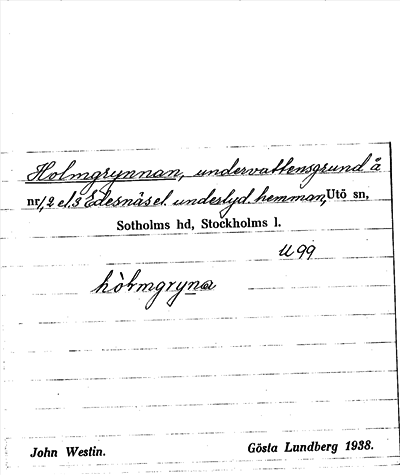 Holmgrynnan, undervattensgrund å
nr 1, 2 el. 3 Edesnäs el. underlyd. hemman, Utö sn,
Sotholms hd, Stockholms l.
U 99
hòlmgryna
John Westin.
Gösta Lundberg 1938.